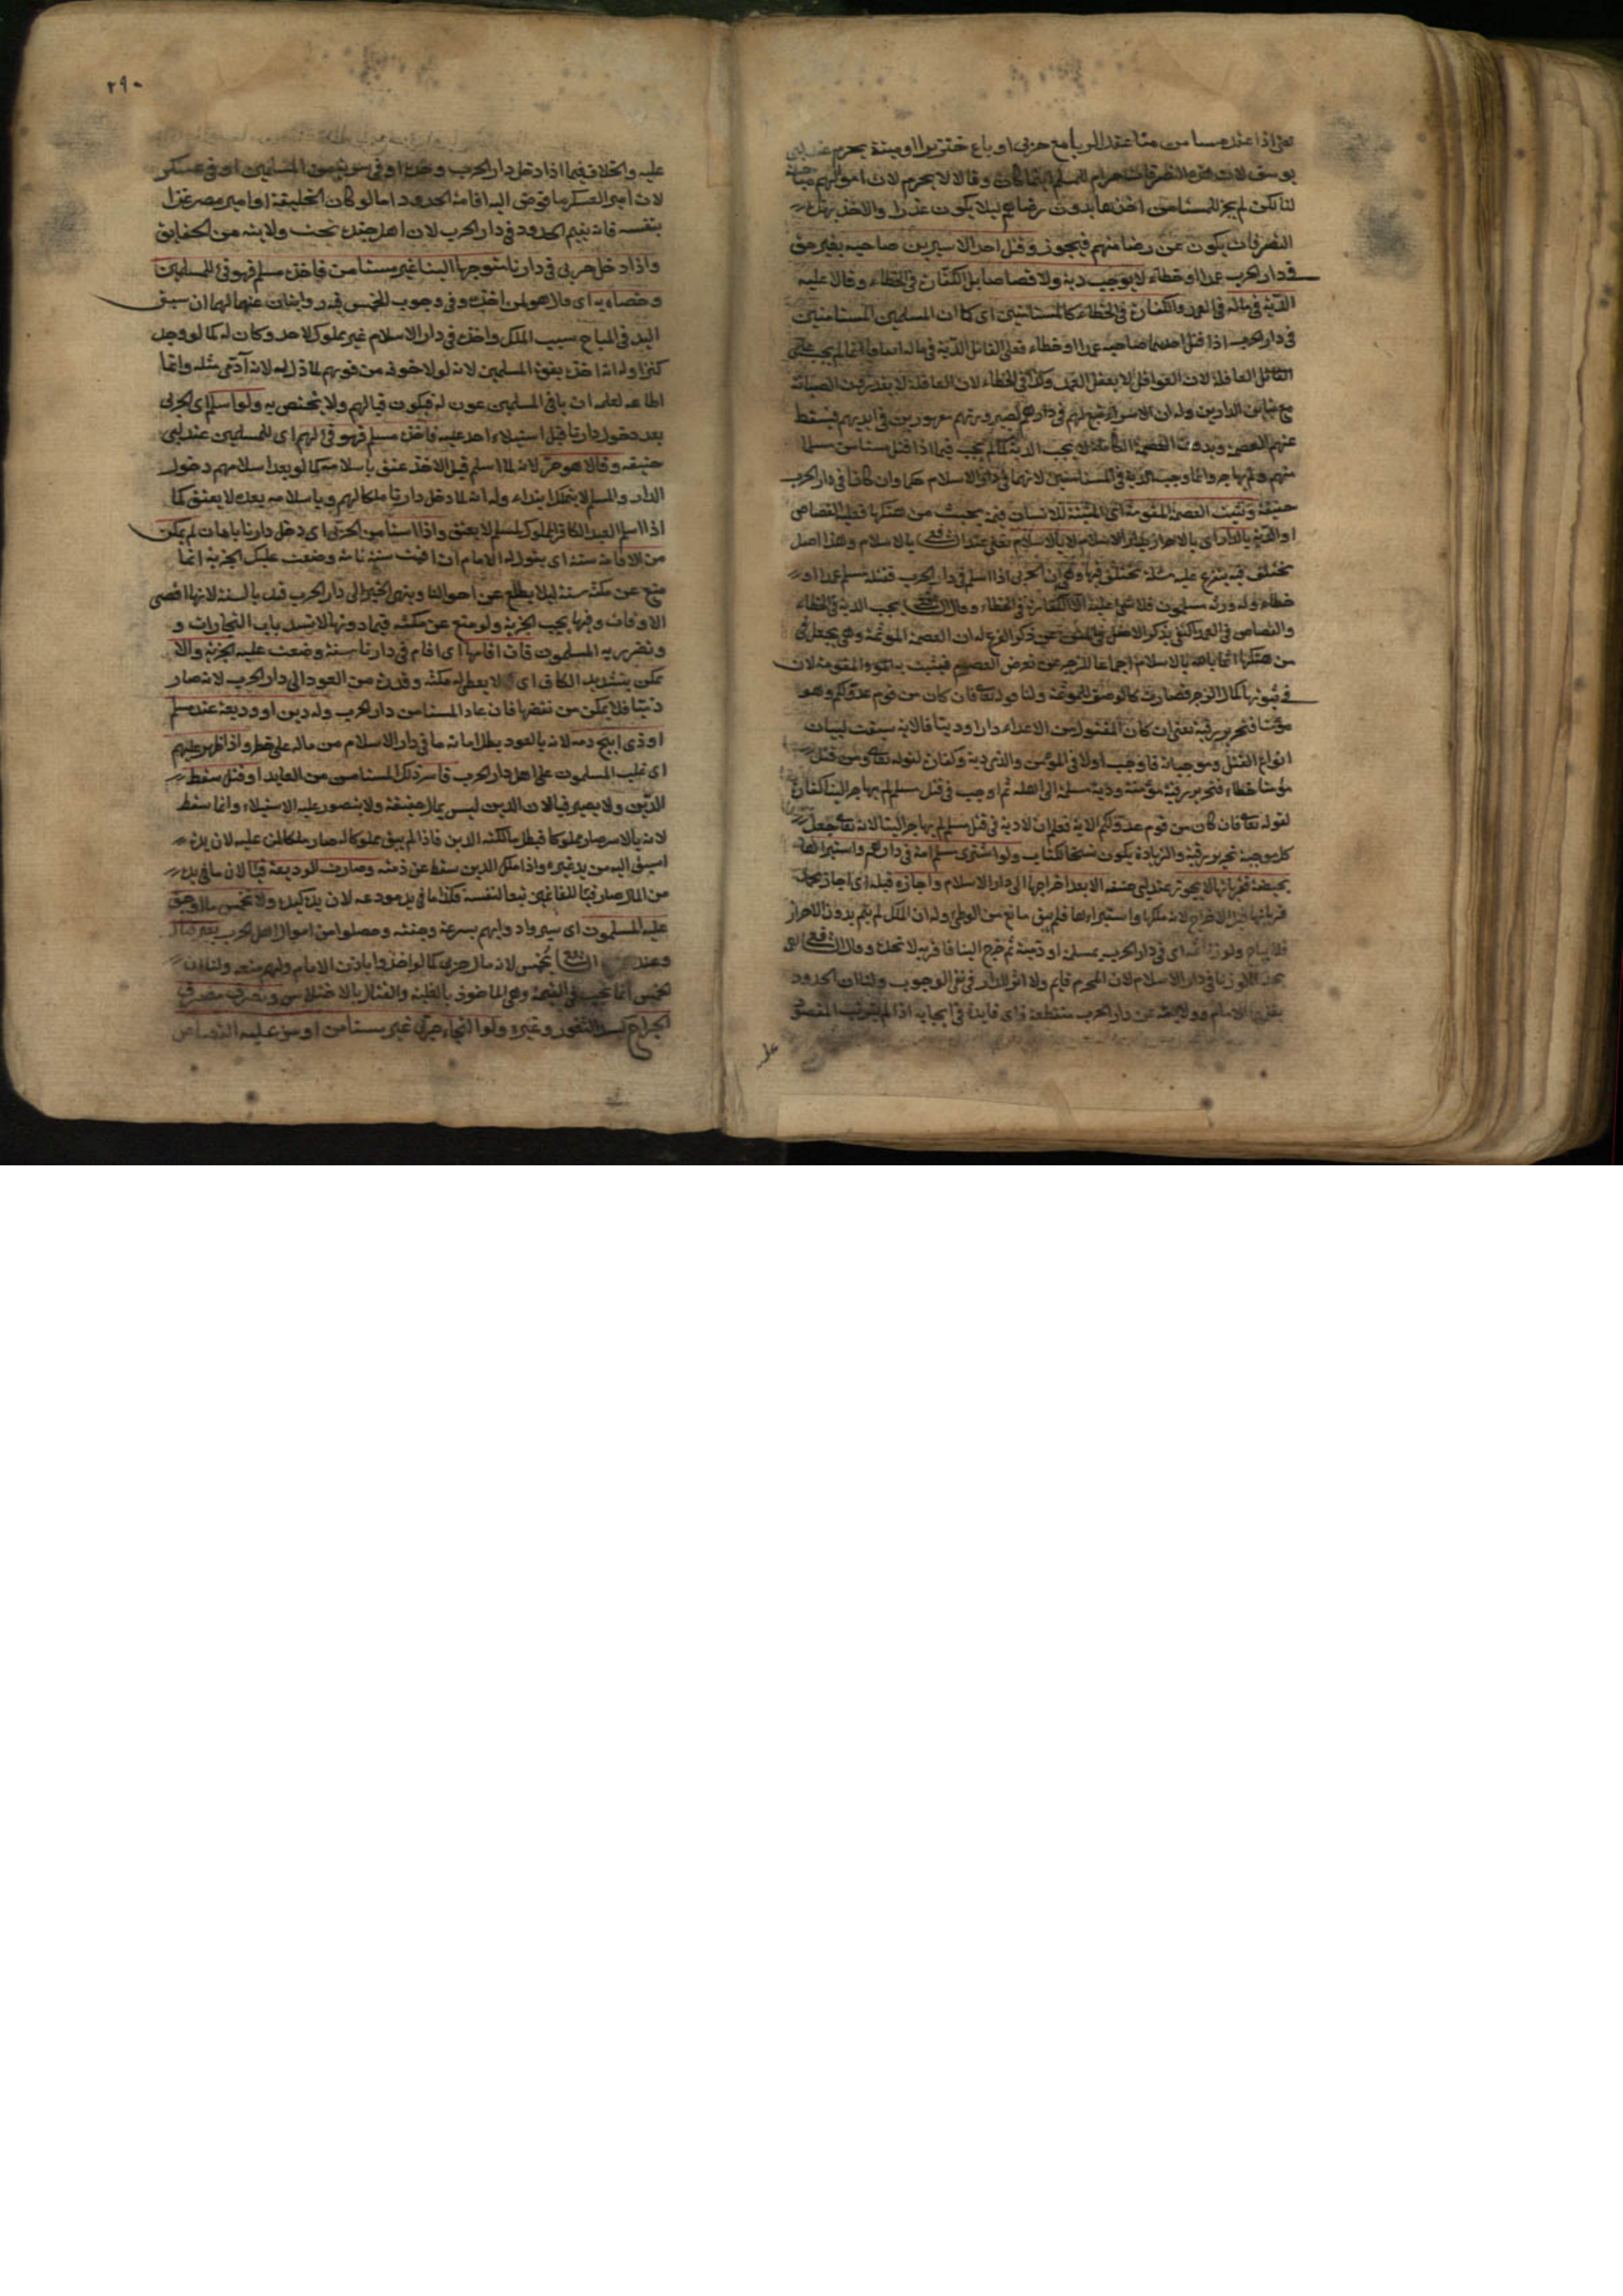 يعنى اذا عقد مسامن منا عقد الربا مع حربى او باع خنزيرا او ميتة يحرم عند ابى
يوسف لان هذه التصرفات حرام للمسلم اينما كان وقالا لا يحرم لان اموالهم مباحة
لنا لكن لم يجز للمستامن اخذها بدون رضاهم ليلا يكون غدرا والاخذ بهذه
التصرفات يكون عن رضا منهم فيجوز وقتل احد الاسيرين صاحبه بغير حق
فى دار الحرب عمدا او خطاء لا يوجب دية ولا قصاصا بل الكفارة فى الخطاء وقالا عليه
الدية فى ماله فى العمد والكفارة فى الخطاء كالمستامنين اى كما ان المسلمين المستامنين
فى دار الحرب اذا قتل احدهما صاحبه عمدا او خطاء فعلى القاتل الدية فى ماله اتفاقا انما لم يجب على
القاتل العاقلة لان العواقل لا يعقل العمد وكذا فى الخطاء لان العاقلة لا يقدرون الصيانة
مع تباين الدارين وله ان الاسراء تبع لهم فى دارهم لصيرورتهم مقهورين فى ايديهم فيسقط
عنهم العصمة وبدون العصمة الكاملة لا يجب الدية كما لم يجب فيما اذا قتل مستامن مسلما
منهم ولم يهاجر وانما وجب الدية فى المستامنين لانهما فى دار الاسلام حكما وان كانا فى دار الحرب
حقيقة وتثبت العصمة المقومة اى المثبتة للانسان قيمة بحيث من هتكها فعليه القصاص
او الدية بالدار اى بالاحراز بدار الاسلام لا بالاسلام يعنى عند الشافعى بالاسلام وهذا اصل
مختلف فيه يتفرع عليه مسئلة مختلف فيها وهى ان الحربى اذا اسلم فى دار الحرب فقتله مسلم عمدا او
خطاء وله ورثة مسلمون فلا شئ عليه الا الكفارة فى الخطاء وقال الشافعى يجب الدية فى الخطاء
والقصاص فى العمد اكتفى بذكر الاصل فى المتن عن ذكر الفرع له ان العصمة المؤثمة وهى يجعل
من هتكها آثما بالاسلام اجماعا للزجر عن تعرض المعصوم فيثبت به المقومة لان
فى ثبوتها كمال الزجر فصارت كالوصف للمؤثمة ولنا قوله تعالى فان كان من قوم عدو لكم وهو
مؤمن فتحرير رقبة يعنى ان كان المقتول من الاعداء دارا ودينا فالاية سيقت لبيان
انواع القتل وموجباته فاوجب اولا فى المؤمن والذى دية وكفارة لقوله تعالى ومن قتل
مؤمنا خطاء فتحرير رقبة مؤمنة ودية مسلمة الى اهله ثم اوجب فى قتل مسلم لم يهاجر الينا كفارة
لقوله تعالى فان كان من قوم عدو لكم الاية فعلم ان لا دية فى قتل مسلم لم يهاجر الينا لانه تعالى جعل
كل موجبه تحرير رقبة والزيادة يكون نسخا لكتاب ولو اشترى مسلم امة فى دارهم واستبراها
بحيضة فقربانها لا يجوز عند ابى حنيفة الا بعد اخراجها الى دار الاسلام واجازه قبله اى اجاز محمد
قربانها قبل الاخراج لانه ملكها واستبراءها فلم يبق مانع من الوطئ وله ان الملك لم يتم بدون الاحراز
فلا يباح ولو زنا اى فى دار الحرب بمسلمة او ذمية ثم خرج الينا فاقر به لا نحده وقال الشافعى
يحد كالو زنا فى دار الاسلام لان المحرم قايم ولا اثر للدار فى نفى الوجوب ولنا ان الحدود
الامام وولايته عن دار الحرب منقطعة فاى فايدة فى ايجابه اذا لم يترتب المقصود
عليه
٢٩٠
عليه والخلاف فيما اذا دخل دار الحرب وحده او فى سرية من المسلمين او فى عسكر
لان امير العسكر ما فوض اليه اقامة الحدود اما لو كان الخليقة او امير مصر غزا
بنفسه فانه يقيم الحدود فى دار الحرب لان اهل جنده تحت ولايته من الحقايق
واذا دخل حربى فى دارنا متوجها الينا غير مستامن فاخذه مسلم فهو فئ للمسلمين
وخصاه به اى قالا هو لمن اخذه وفى وجوب الخمس فيه روايتان عنهما لهما ان سبق
اليد فى المباح سبب الملك واخذه فى دار الاسلام غير مملوك لاحد وكان له كما لو وجد
كنزا وله انه اخذه بقوة المسلمين لانه لولا خوفه من قوتهم لما ذل له لانه آدمى مثله وانما
اطاعه لعلمه ان باقى المسلمين عون له فيكون فيا لهم ولا يختص به ولو اسلم اى الحربى
بعد دخول دارنا قبل استيلاء احد عليه فاخذه مسلم فهو فئ لهم اى للمسلمين عند ابى
حنيفه وقالا هو حر لانه لما اسلم قبل الاخذ عتق باسلامه كما لو بعد اسلامهم دخول
الدار والمسلم لا يتملك ابتداء وله انه لما دخل دارنا ملكا لهم وباسلامه بعده لا يعتق كما
اذا اسلم العبد الكافر المملوك لمسلم لا يعتق واذا استامن الحربى اى دخل دارنا باهان لم يمكن
من الاقامة سنة اى يقول له الامام ان اقمت سنة تامة وضعت عليك الجزية انما
منع عن مكثه سنة ليلا يطلع عن احوالنا وينهى الخبر الى دار الحرب قيد بالسنة لانها اقصى
الاوقات وفيها يجب الجزية ولو منع عن مكثه فيما دونها لانسد باب التجارات و
وتضرر به المسلمون فان اقامها اى اقام فى دارنا سنة وضعت عليه الجزية ولا
يمكن بتشديد الكاف اى لا يعطى له مكنة وقدرة من العود الى دار الحرب لانه صار
ذميا فلا يمكن من نقضها فان عاد المستامن دار الحرب وله دين او وديعة عند مسلم
او ذمى ابيح دمه لانه بالعود بطل امانه ما فى دار الاسلام من ماله على خطر واذا ظهر عليهم
اى غلب المسلمون على اهل دار الحرب فاسر ذلك المستامن من العايد او قتل سقط
الدين ولا يصير فيا لان الدين ليس بمال حقيقة ولا يتصور عليه الاستيلاء وانما سقط
لانه بالاسر صار مملوكا فبطل مالكته الدين فاذا لم يبق مملوكا له صار ملكا لمن عليه لان يده
اسبق اليه من يد غيره واذا ملك الدين سقط عن ذمته وصارت الوديعة فيا لان ما فى يده
من المال صار فيا للغانمين تبعا لنفسه فكذا ما فى يد مودعه لان يده كيده ولا تخمس ما اوجف
عليه المسلمون اى سيروا دوابهم بسرعة وحثته وحصلوا من اموال اهل الحرب بغير قتال
وعند الشافعى تخمس لانه مال حربى كما لو اخذوا باذن الامام ولهم منعه ولنا ان
الخمس انما يجب فى الغنيمة وهى الماخوذ بالغلبة والقتال بالاختلاس ويصرف مصرف
الخراج كسد الثغور وغيره ولو التجاء حربى غير مستامن او من عليه القصاص